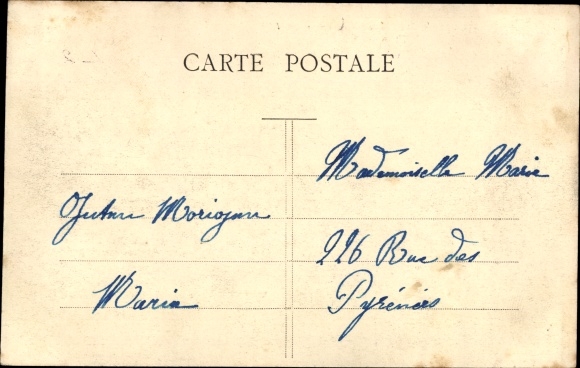 CARTE POSTALE
Maria
Mademoiselle Marie
226 Rue des
Pyrénées